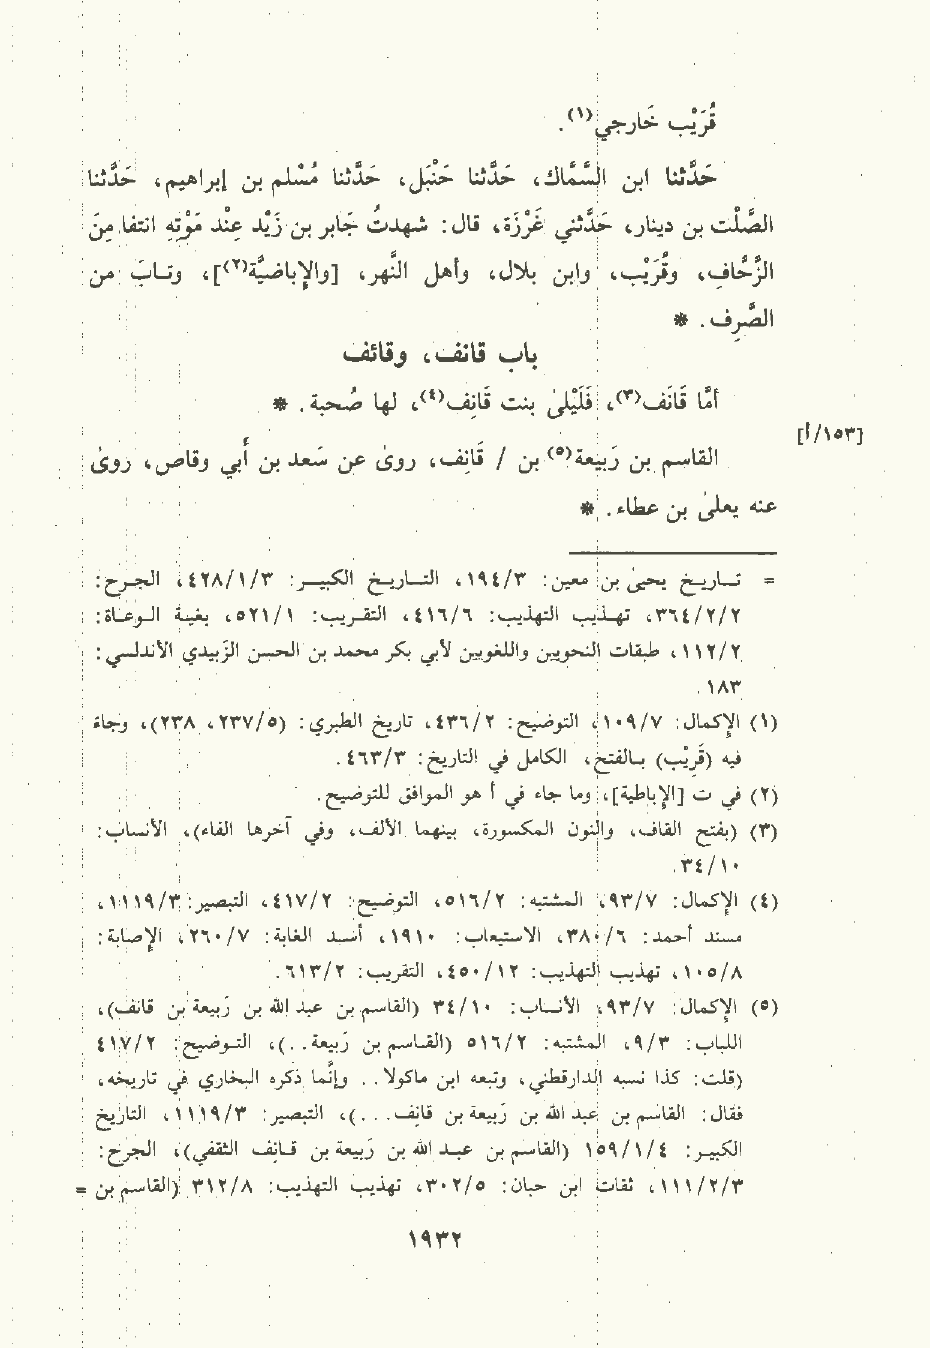 قُرَيْب خَارجي(١).
حَدَّثنا ابن السَّمَّاك، حَدَّثنا حَنْبَل، حَدَّثنا مُسْلم بن إبراهيم، حَدَّثنا
الصَّلْت بن دينار، حَدَّثني غَرْزَة، قال: شهدتُ جَابر بن زَيْد عِنْد مَوْتِهِ انتفا مِنَ
الزَّحَّاف، وقُرَيْب، وابن بلال، وأهل النَّهر، [والإباضيَّة(٢)]، وتـابَ من
الصَّرِف. *
باب قانف، وقائف
أمَّا قَانَف(٣)، فَلَيْلىٰ بنت قَانِف(٤)، لها صُحبة. *
[١٥٣/أ]
القاسم بن رَبيعة(٥) بن / قَانِف، روىٰ عن سَعد بن أَبي وقاص، روىٰ
عنه يعلىٰ بن عطاء. *
= تـاريـخ يحيىٰ بن معين: ١٩٤/٣، التـاريـخ الكبيـر: ٤٢٨/١/٣، الجـرح:
٣٦٤/٢/٢، تهـذيب التهذيب: ٤١٦/٦، التقـريب: ٥٢١/١، بغيـة الـوعـاة:
١١٢/٢، طبقات النحويين واللغويين لأبي بكر محمد بن الحسن الزَبيدي الأندلسي:
١٨٣.
(١) الإكمال: ١٠٩/٧، التوضيح: ٤٣٦/٢، تاريخ الطبري: (٢٣٧/٥، ٢٣٨)، وجاءَ
فيه (قَرِيْب) بـالفتح، الكامل في التاريخ: ٤٦٣/٣.
(٢) في ت [الإباطية]، وما جاء في أ هو الموافق للتوضيح.
(٣) (بفتح القاف، والنون المكسورة، بينهما الألف، وفي آخرها الفاء)، الأنساب:
٣٤/١٠.
(٤) الإكمال: ٩٣/٧، المشتبه: ٥١٦/٢، التوضيح: ٤١٧/٢، التبصير: ١١١٩/٣،
مسند أحمد: ٣٨٠/٦، الاستيعاب: ١٩١٠، أسـد الغابة: ٢٦٠/٧، الإصابة:
١٠٥/٨، تهذيب التهذيب: ٤٥٠/١٢، التقريب: ٦١٣/٢.
(٥) الإكمال: ٩٣/٧، الأنساب: ٣٤/١٠ (القاسم بن عبد الله بن رَبيعة بن قانف)،
اللباب: ٩/٣، المشتبه: ٥١٦/٢ (القـاسم بن رَبيعة..)، التـوضيح: ٤١٧/٢
(قلت: كذا نسبه الدارقطني، وتبعه ابن ماكولا.. وإنَّما ذكره البخاري في تاريخه،
فقال: القاسم بن عبد الله بن رَبيعة بن قانِف...)، التبصير: ١١١٩/٣، التاريخ
الكبيـر: ١٥٩/١/٤ (القاسم بن عبـد الله بن رَبيعة بن قـانِف الثقفي)، الجرح:
١١١/٢/٣، ثقات ابن حبان: ٣٠٢/٥، تهذيب التهذيب: ٣١٢/٨ (القاسم بن =
١٩٣٢